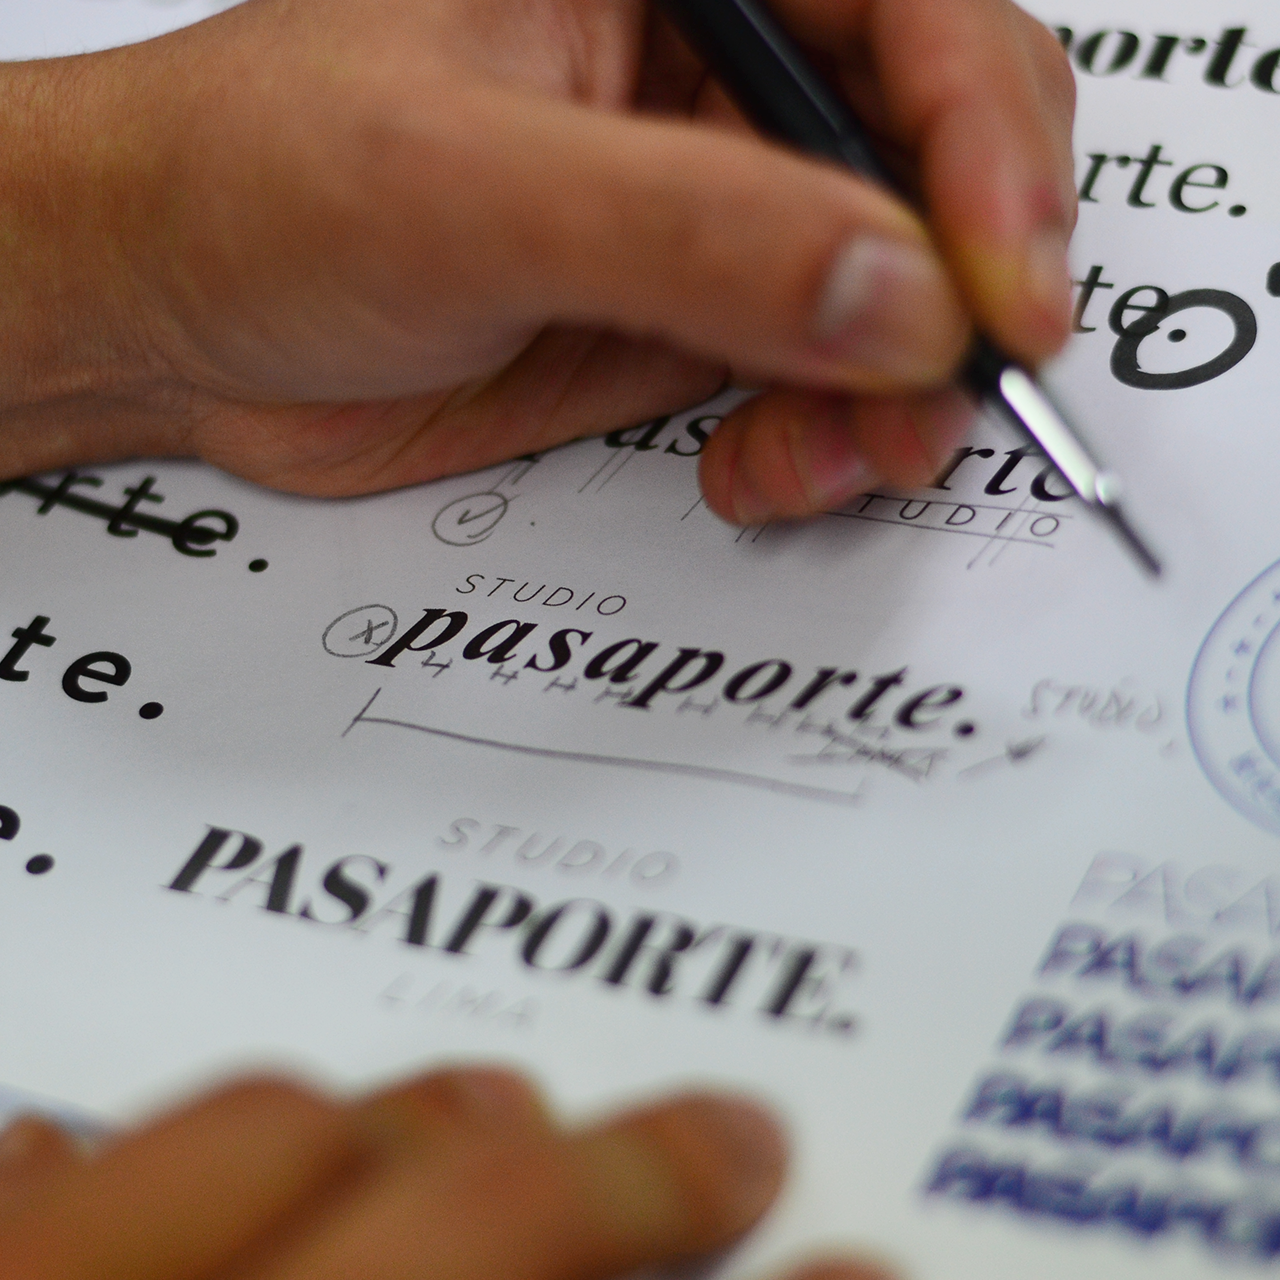 orte
rte.
te.
as rte
TUDIO
rte.
STUDIO
x pasaporte.
STUDIO
LIMA
te.
e.
STUDIO
PASAPORTE.
LIMA
PASA
PASAP
PASAPO
PASAPO
PASAPO